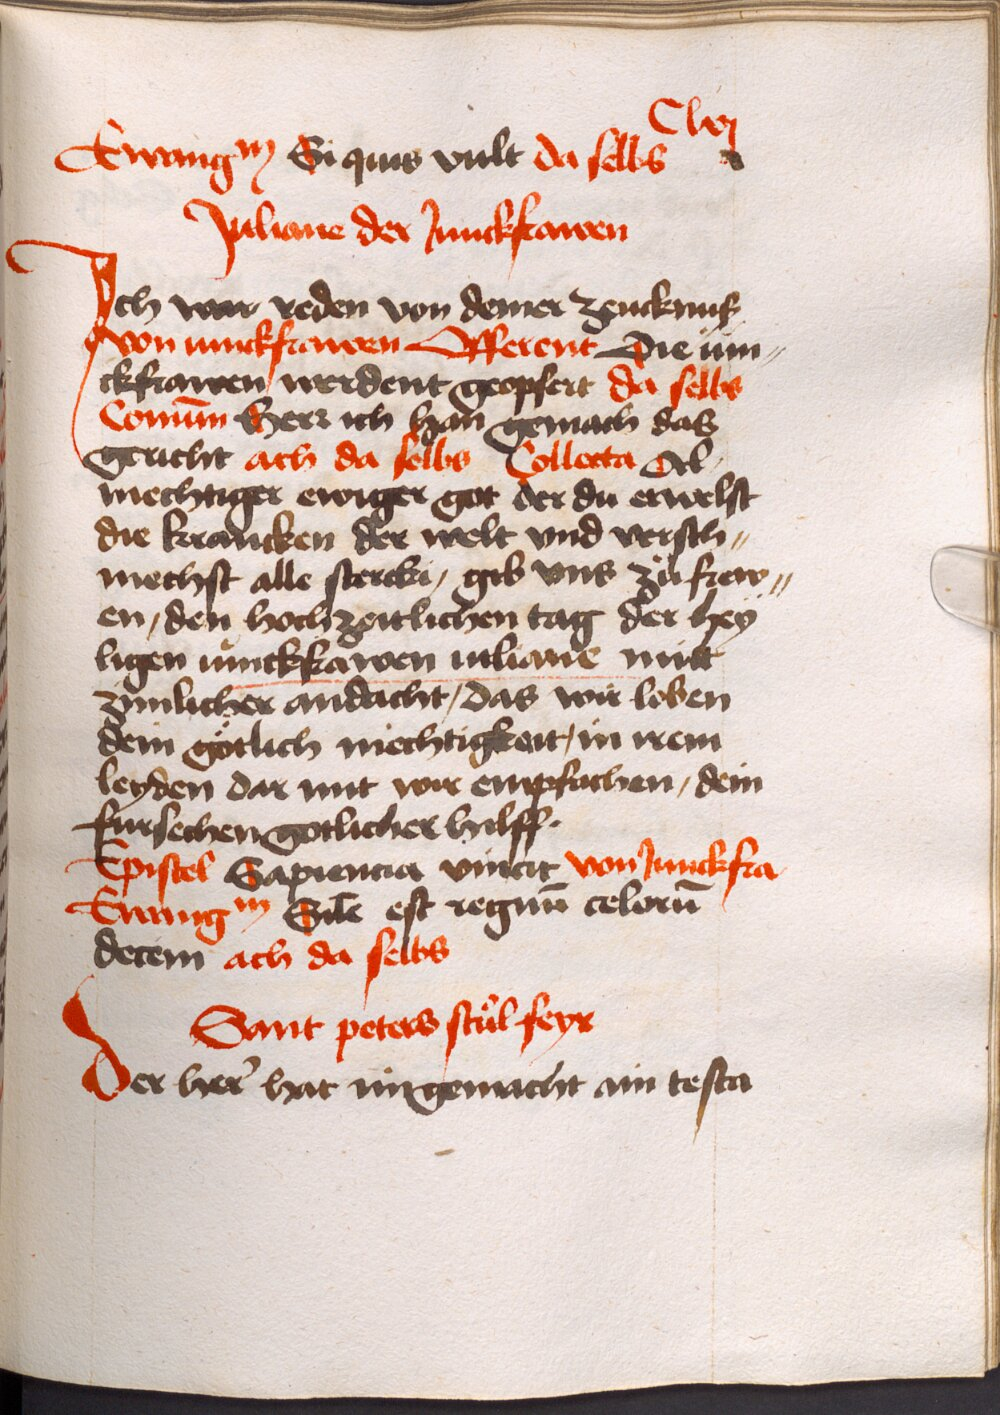 Ewangm Si quis vult da selbs
Juliane der Junckfrawen
Ich war reden von deiner zeucknus
von iunckfrawen Offerent Die iun〃
ckfrawen werdent geopfert da selbs
Comūm Herr ich han gemach das
gericht ach da selbs Collecta Al
mechtiger ewiger got der du erwelst
die krancken der welt vnd versch〃
mechst alle stercki / gib vns zů frew〃
en / den hochzeitlichen tag der hey
ligen iunckfrawen iuliane mitt
zimlicher andacht / das wir loben
dein götlich mechtigkeit / in irem
leyden dar mit wir empfachen / dein
fursechen gotlicher hilff.
Epistel Sapiencia vincit von Junckfra
Ewangm Sile est regnū celorū
decem ach da selbs
Sant peters stůl feyr
Der herr hat im gemacht ain testa